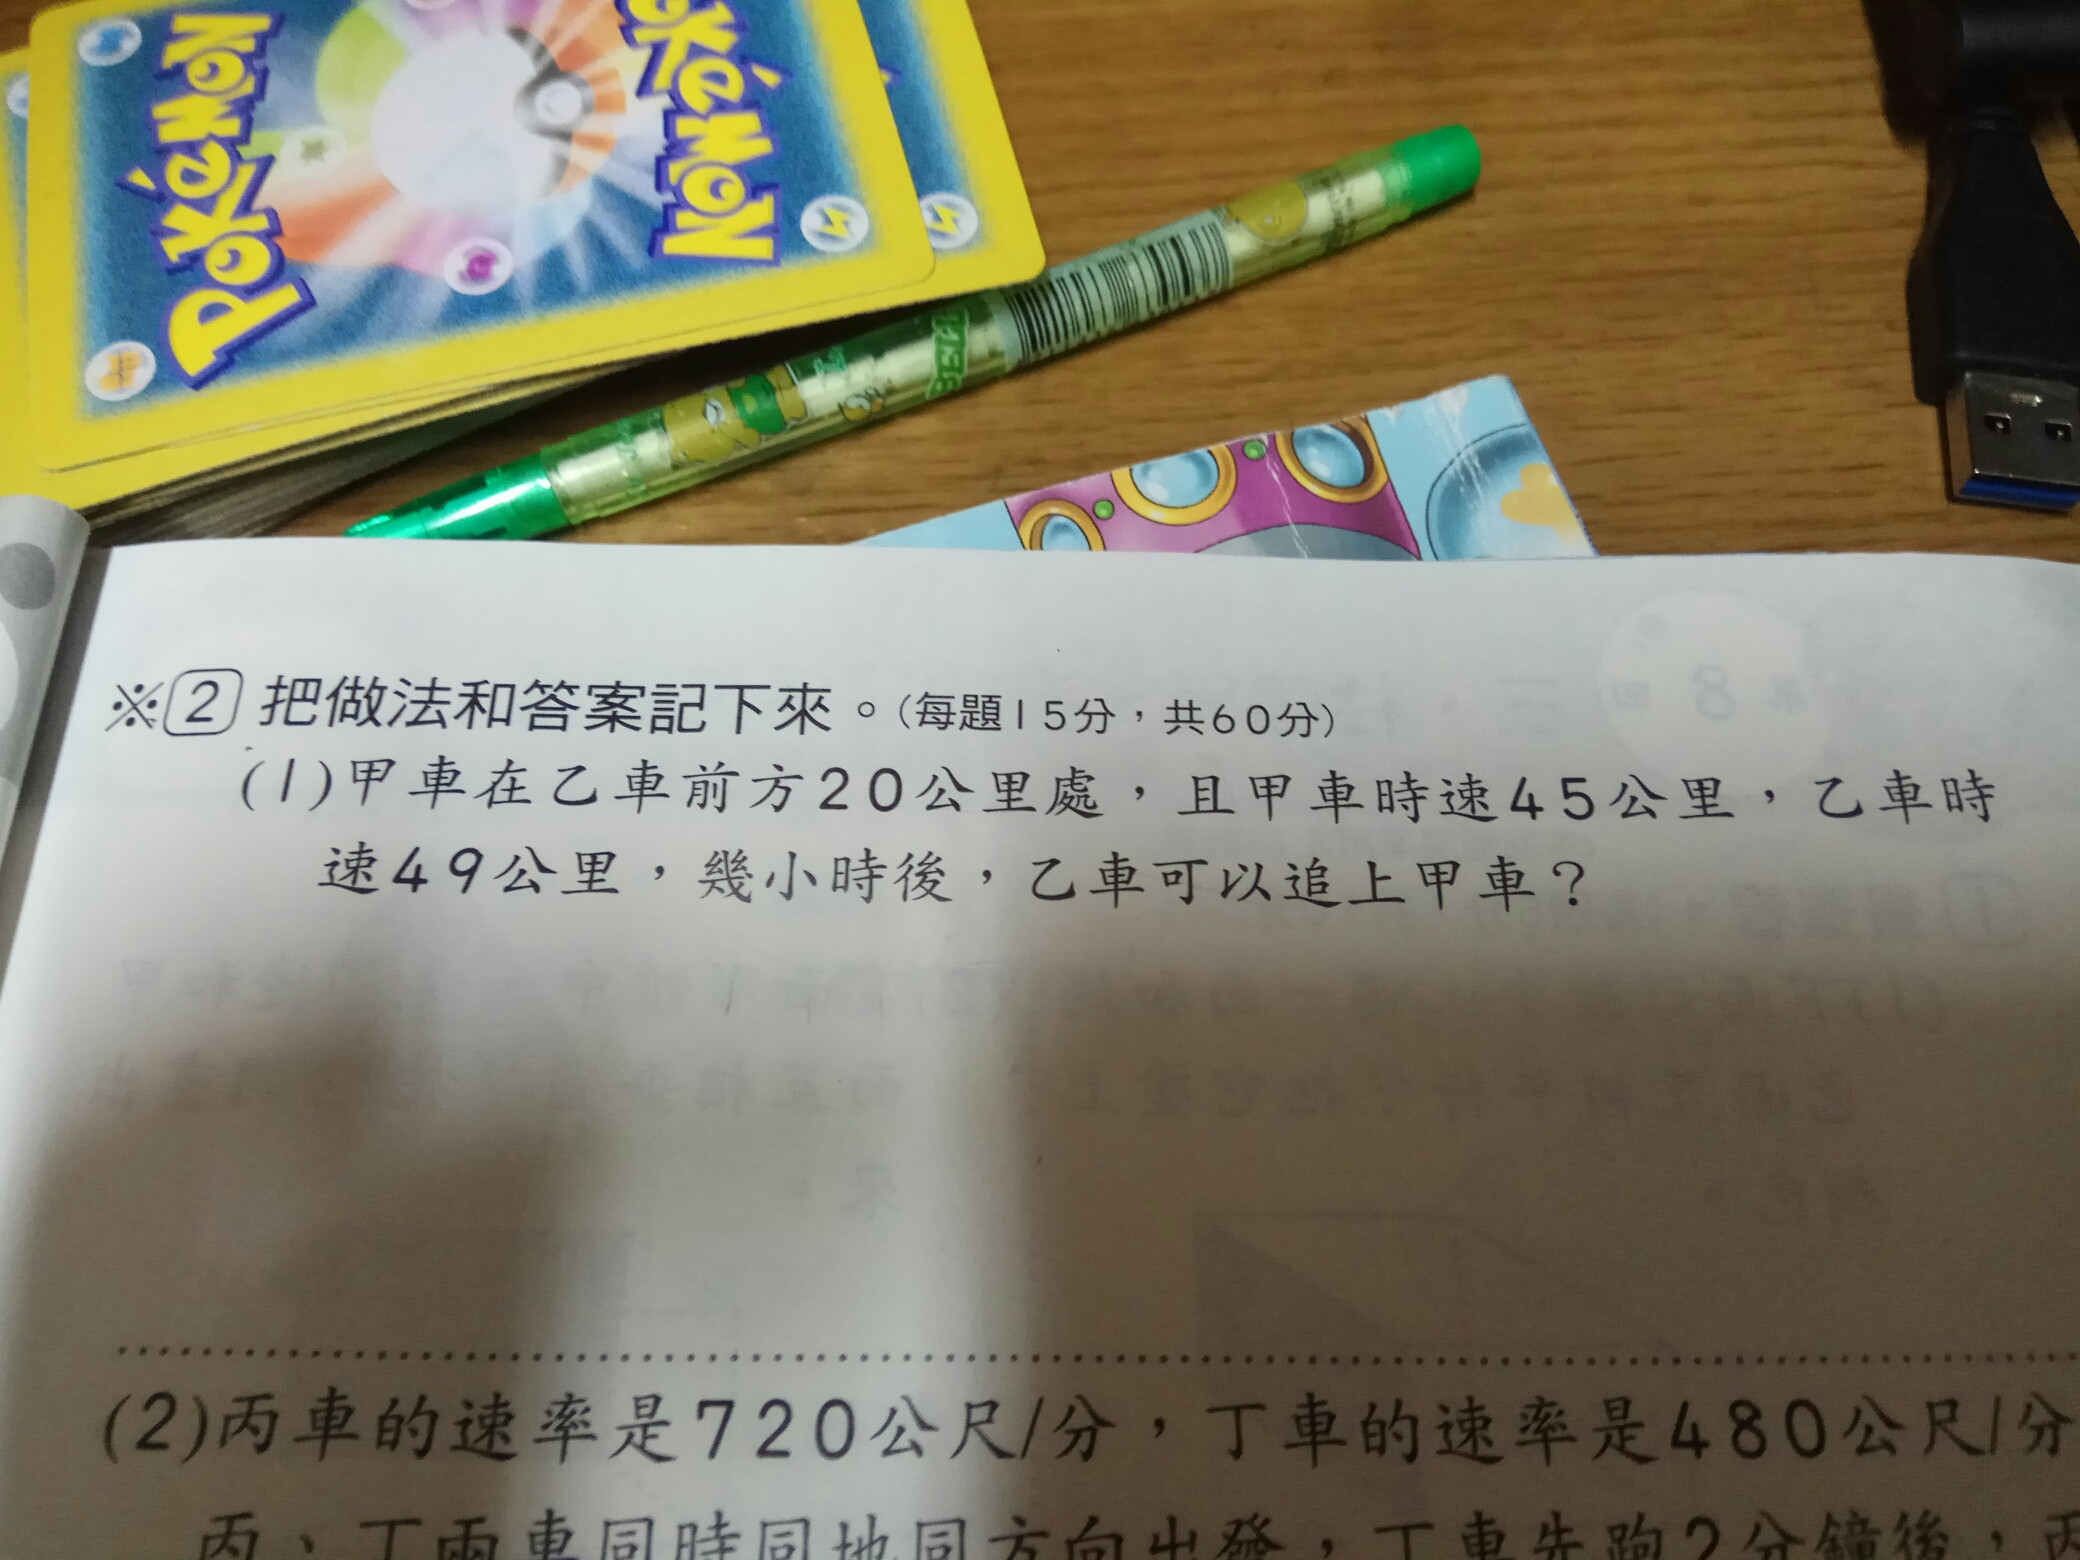 POKéMON
POKéMON
※2 把做法和答案記下來。(每題15分，共60分)
(1)甲車在乙車前方20公里處，且甲車時速45公里，乙車時
速49公里，幾小時後，乙車可以追上甲車？
(2)丙車的速率是720公尺/分，丁車的速率是480公尺/分
丙、丁兩車同時同地同方向出發，丁車先跑2分鐘後，丙